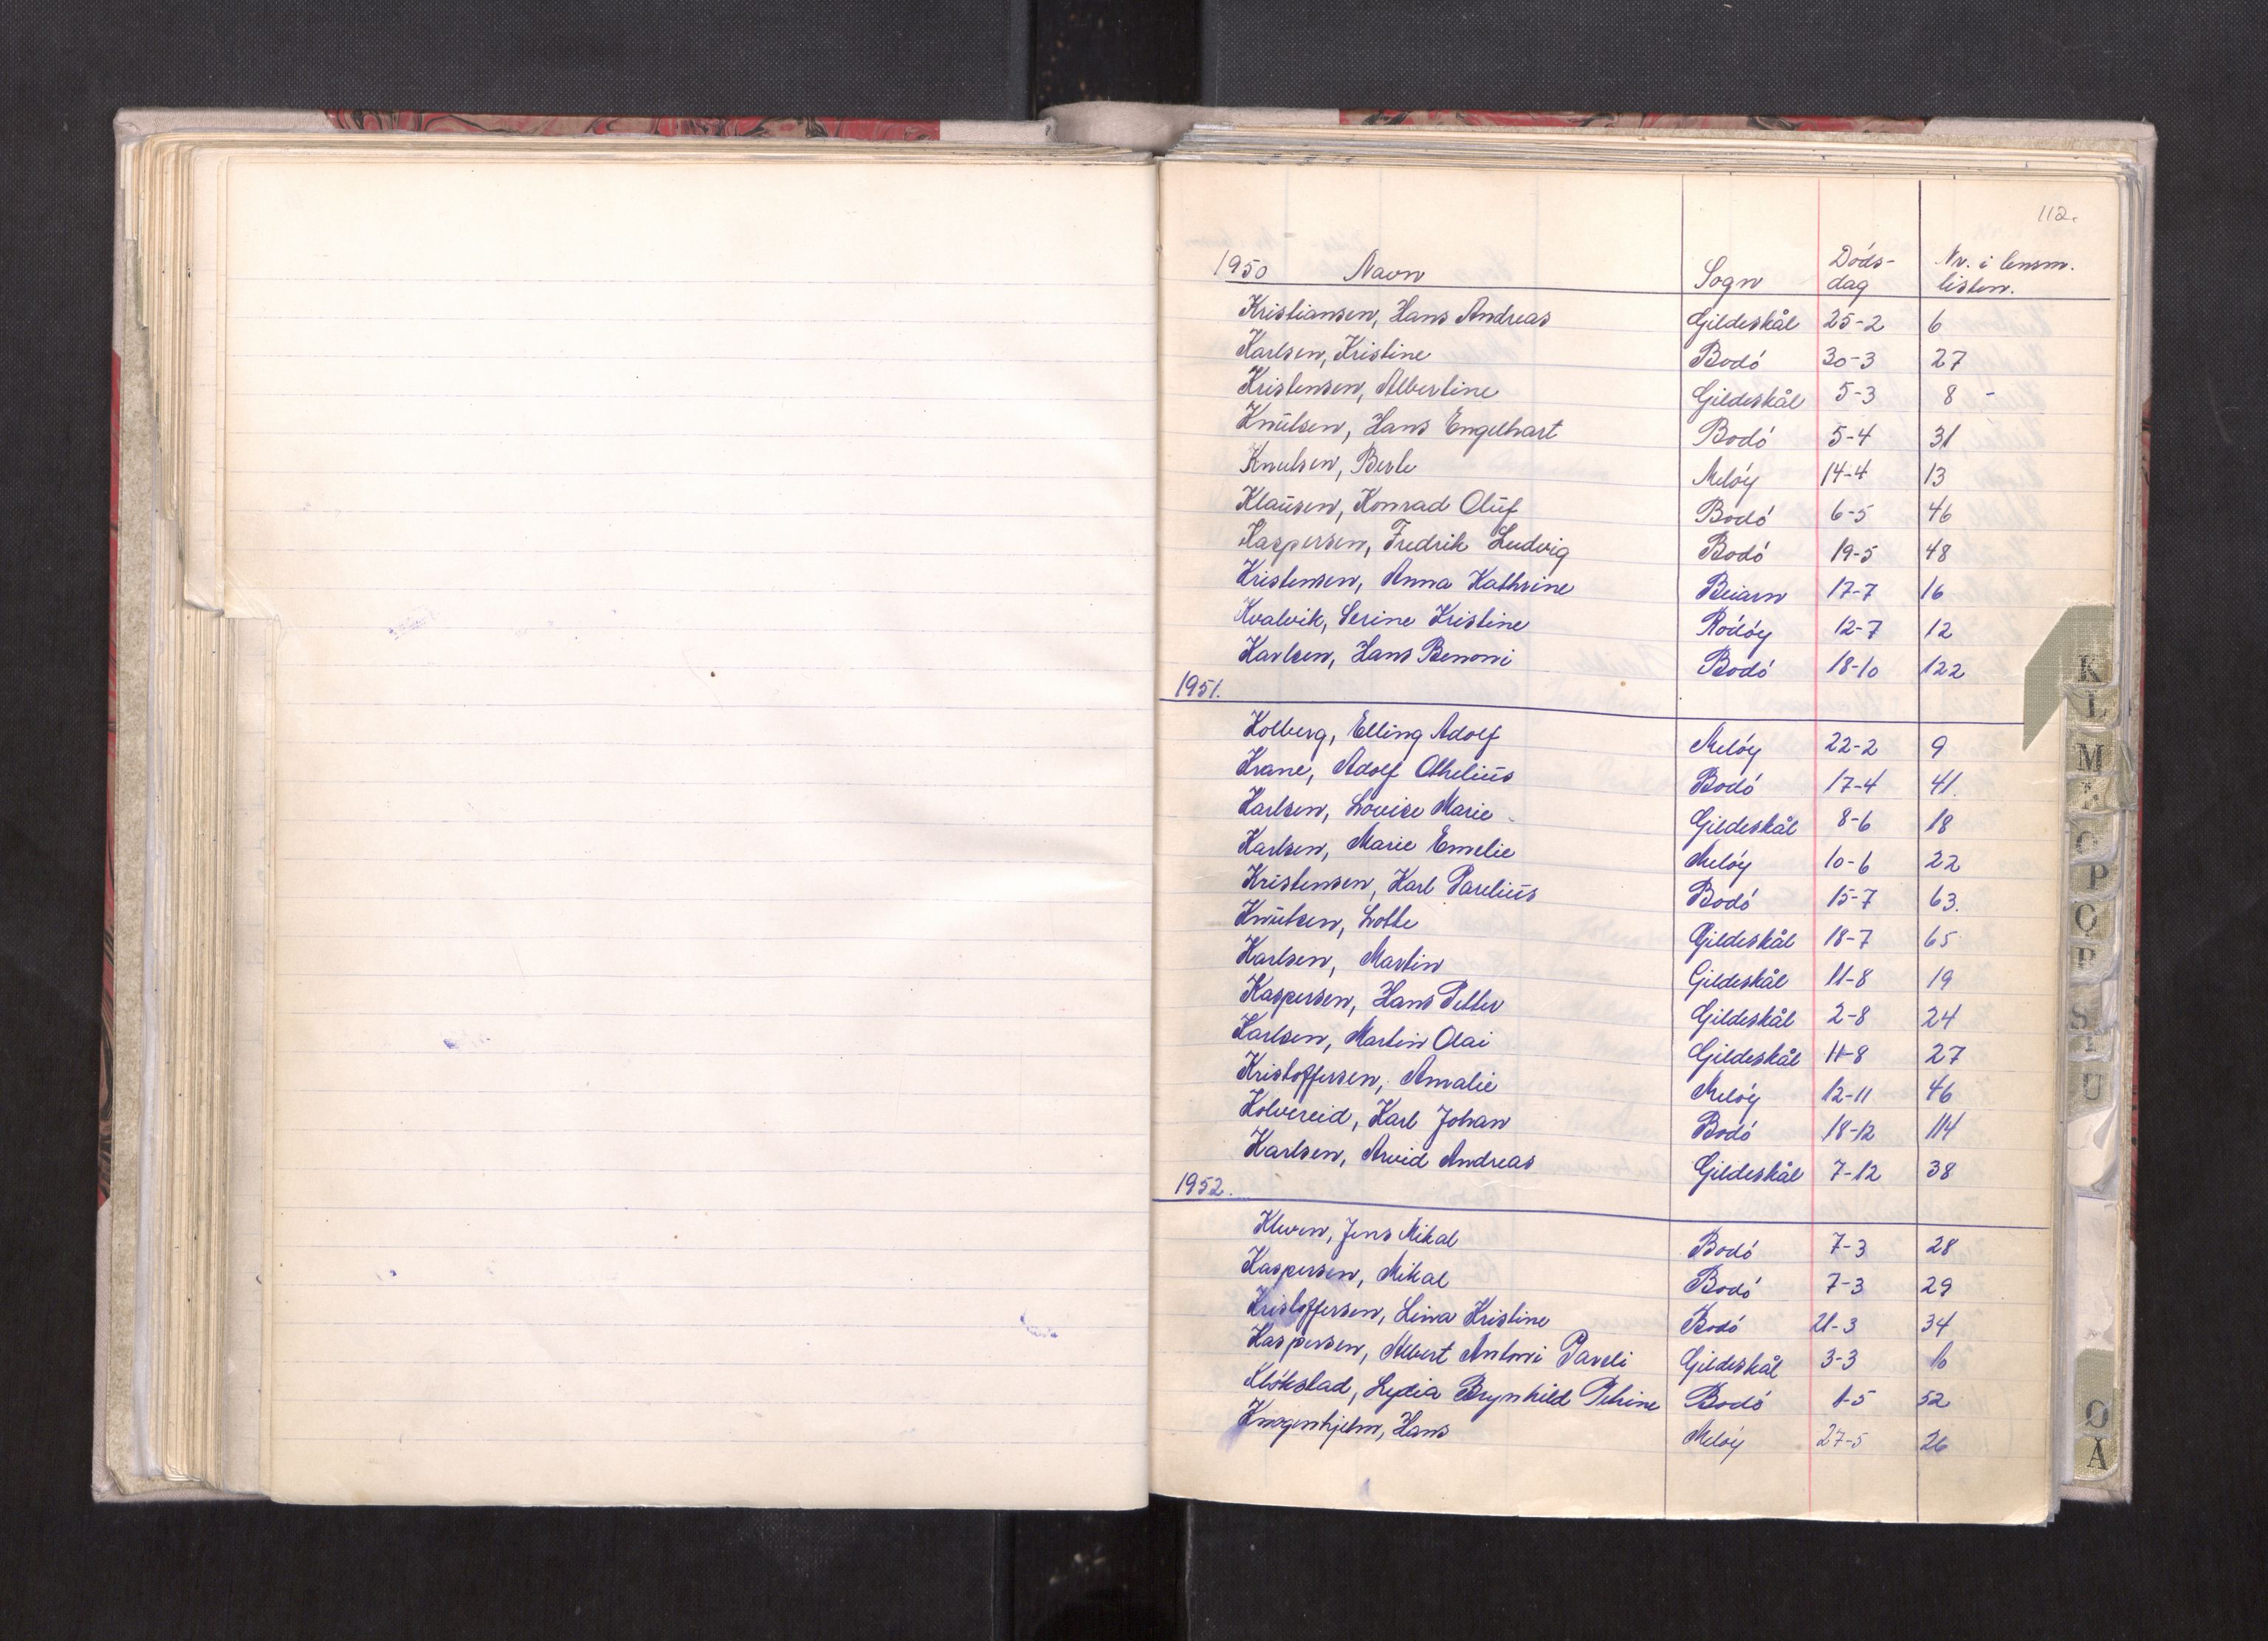 112.
1950 Navn Sogn Døds-dag Nr. i lensm. listen.
Kristiansen, Hans Andreas Gildeskål 25-2 6
Karlsen, Kristine Bodø 30-3 27
Kristensen, Albertine Gildeskål 5-3 8 -
Knutsen, Hans Engelhart Bodø 5-4 31
Knutsen, Berle Meløy 14-4 13
Klausen, Konrad Oluf Bodø 6-5 46
Kaspersen, Fredrik Ludvig Bodø 19-5 48
Kristensen, Anna Kathrine Beiarn 17-7 16
Kvalvik, Serine Kristine Rødøy 12-7 12
Karlsen, Hans Benoni Bodø 18-10 122
1951.
Kolberg, Elling Adolf Meløy 22-2 9
Krane, Adolf Othelius Bodø 17-4 41.
Karlsen, Lovise Marie Gildeskål 8-6 18
Karlsen, Marie Emelie Meløy 10-6 22
Kristensen, Karl Parelius Bodø 15-7 63.
Knutsen, Lotte Gildeskål 18-7 65
Karlsen, Martin Gildeskål 11-8 19
Kaspersen, Hans Petter Gildeskål 2-8 24
Karlsen, Martin Olai Gildeskål 11-8 27
Kristoffersen, Amalie Meløy 12-11 46
Kolvereid, Karl Johan Bodø 18-12 114
Karlsen, Arvid Andreas Gildeskål 7-12 38
1952.
Kleven, Jens Mikal Bodø 7-3 28
Kaspersen, Mikal Bodø 7-3 29
Kristoffersen, Lina Kristine Bodø 21-3 34
Kaspersen, Albert Antoni Pareli Gildeskål 3-3 10
Kløkstad, Lydia Brynhild Petrine Bodø 1-5 52
Knagenhjelm, Hans Meløy 27-5 26
K
L
M
O
P
Q
R
S
T
U
Ø
A